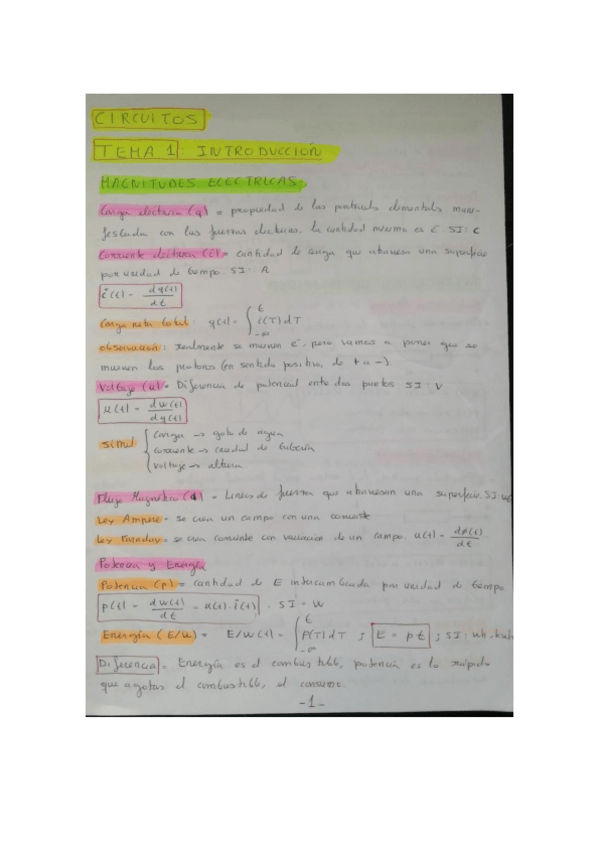 CIRCUITOS
TEMA 1: INTRODUCCIÓN
MAGNITUDES ELECTRICAS:
Carga electrica (q) = propiedad de las partículas elementales mani-
festada con las fuerzas electricas, la cantidad mínima es é SI: C
Corriente electrica (i) = cantidad de carga que atraviesa una superficie
por unidad de tiempo. SI: A
i(t) = dq(t)/dt
Carga neta total: q(t) = ∫_{-∞}^{t} i(T) dT
Observación: realmente se mueven é, pero vamos a poner que se
mueven los protones (en sentido positivo, de + a -)
Voltaje (u) = Diferencia de potencial entre dos puntos SI: V
u(t) = dw(t)/dq(t)
Simil
Carga → gota de agua
corriente → caudal de tubería
voltaje → altura
Flujo Magnético (ϕ) = Líneas de fuerza que atraviesan una superficie. SI:
Ley Ampere - se crea un campo con una corriente
Ley Faraday - se crea corriente con variación de un campo. u(t) = dϕ(t)/dt
Potencia y Energía
Potencia (p) = cantidad de E intercambiada por unidad de tiempo
p(t) = dw(t)/dt = u(t) · i(t) . SI = W
Energía (E/w) = E/w(t) = ∫_{-∞}^{t} p(T) dT ; E = p t ; SI: wh, kwh
Diferencia = Energía es el combustible, potencia es lo rápido
que agotas el combustible, el consumo.
-1-